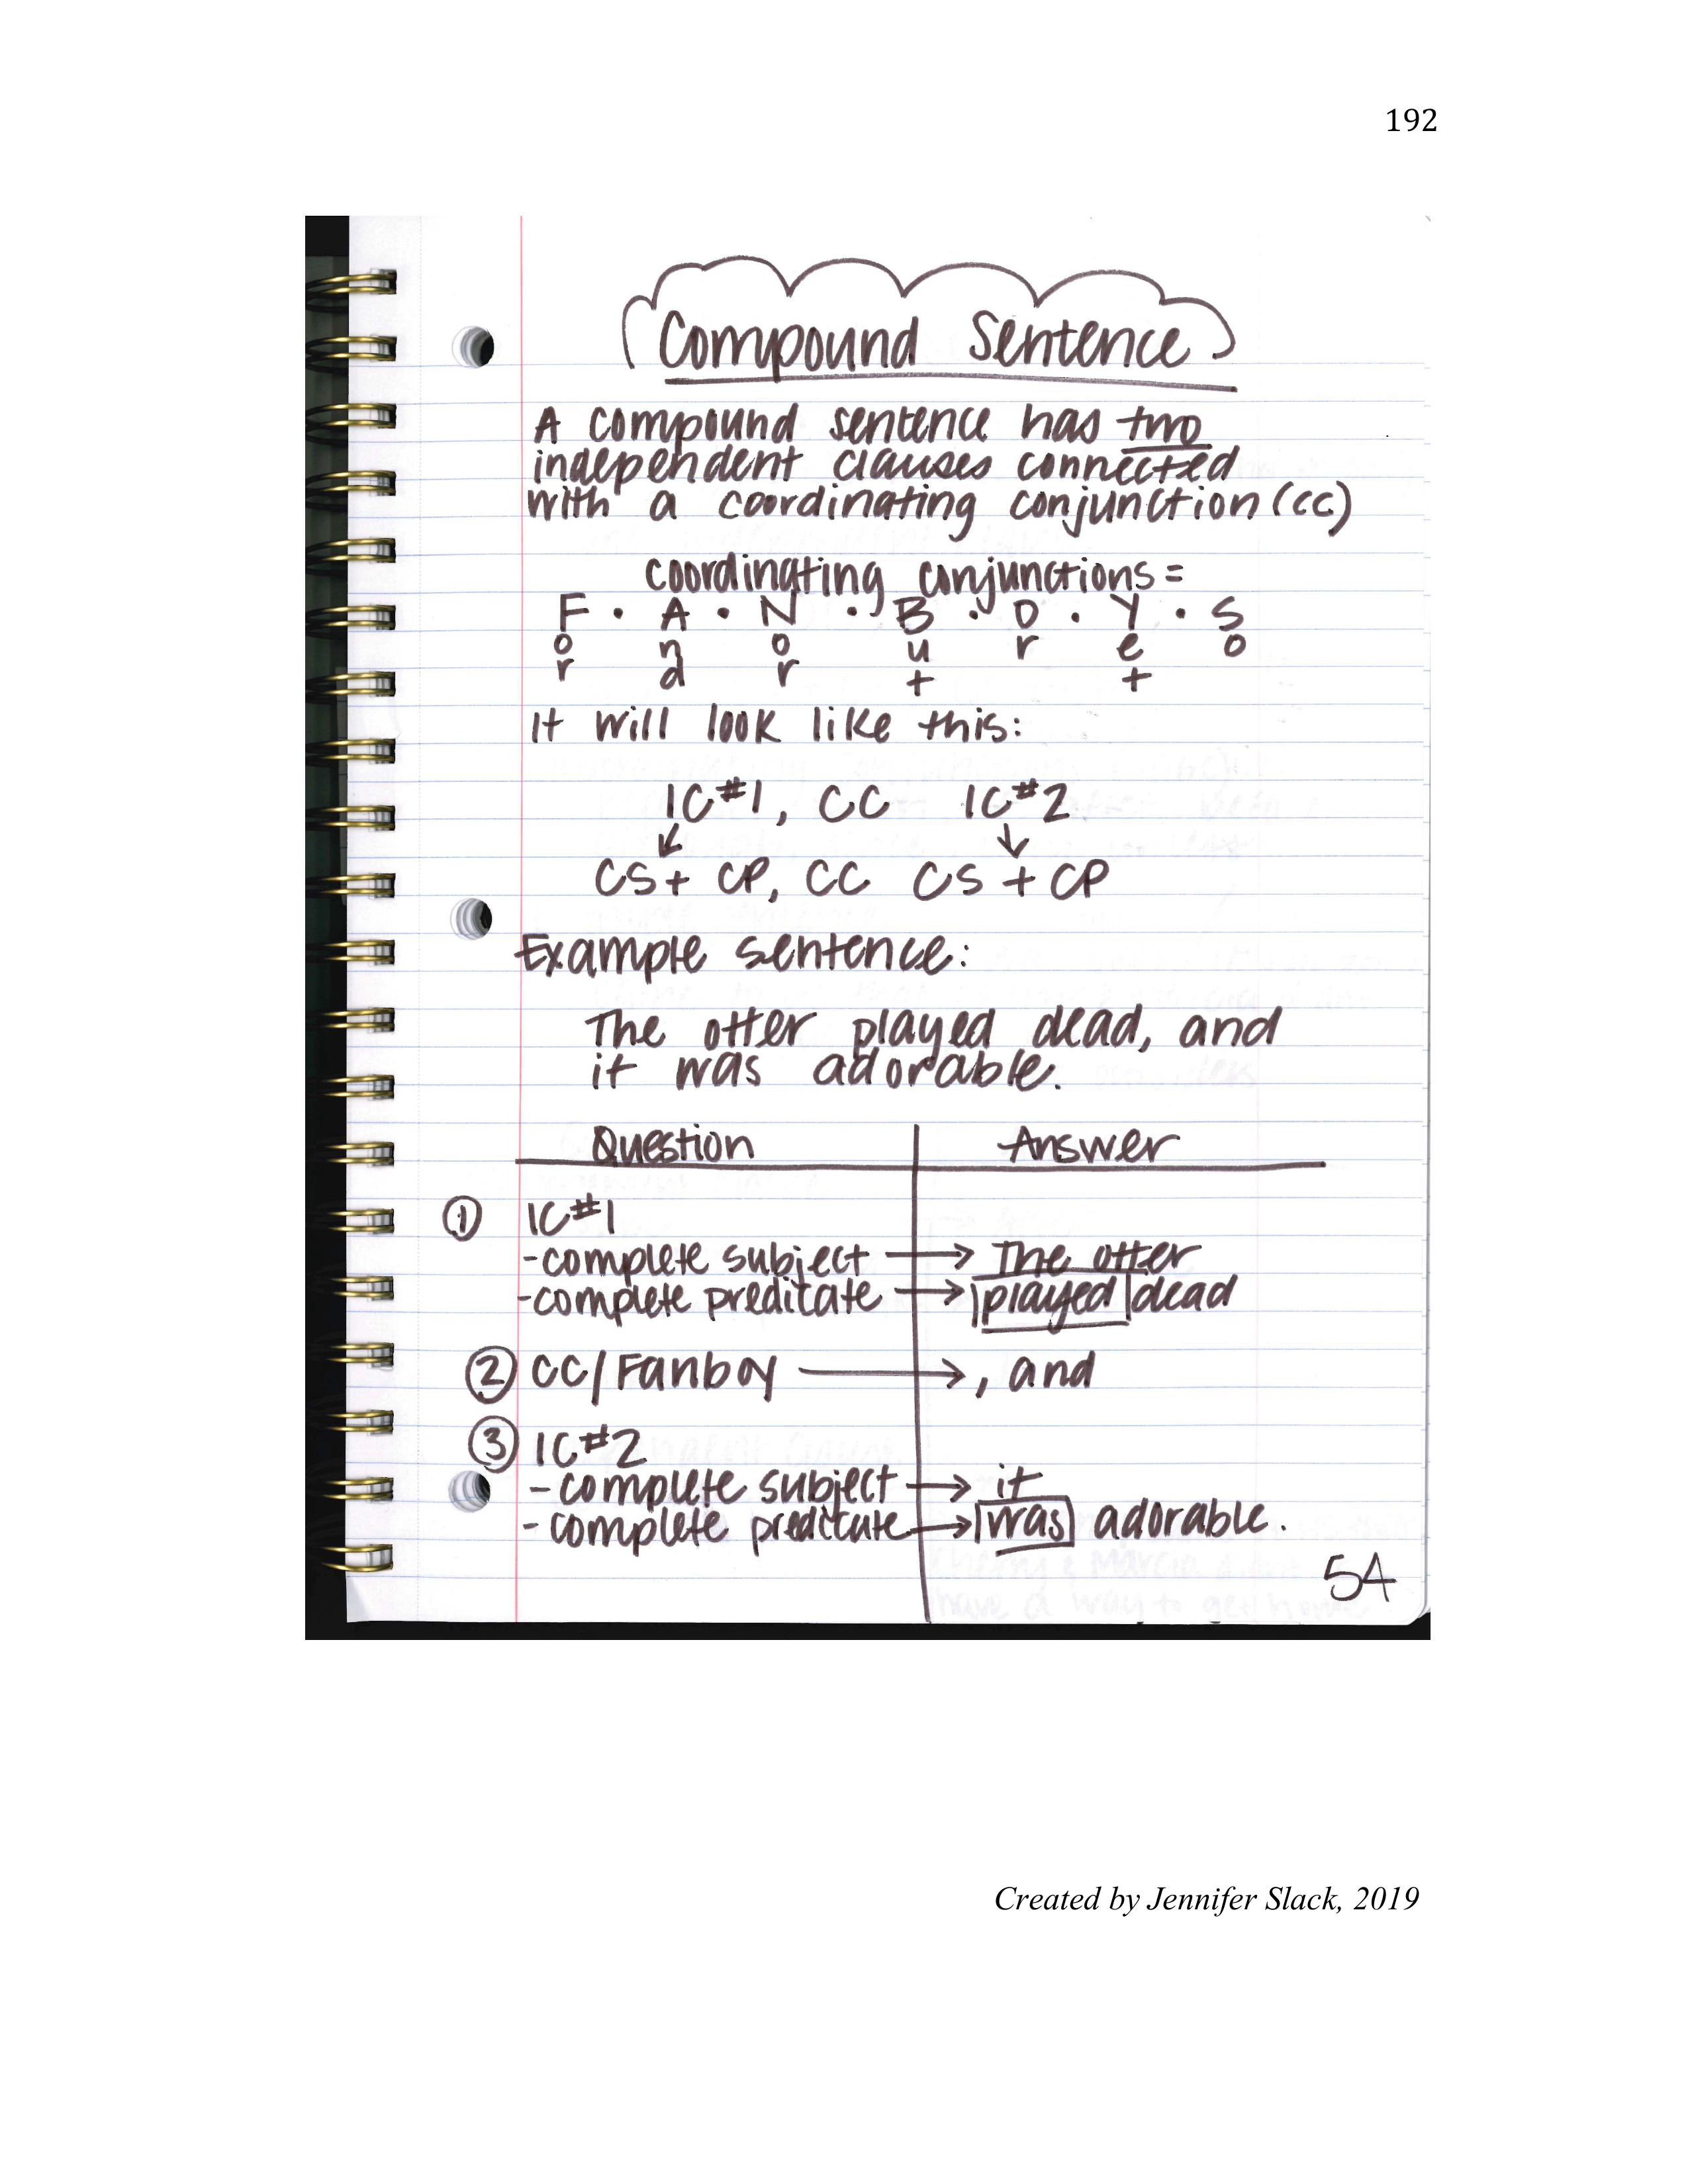 192
Compound Sentence
A compound sentence has two
independent clauses connected
with a coordinating conjunction (cc)
coordinating conjunctions =
F • A • N • B • O • Y • S
o n o u r e o
r d r t t
It will look like this:
IC#1, CC IC#2
CS + CP, CC CS + CP
Example sentence:
The otter played dead, and
it was adorable.
Question Answer
① IC#1
-complete subject → The otter
-complete predicate → played dead
② CC/Fanboy → , and
③ IC#2
- complete subject → it
- complete predicate → was adorable.
54
Created by Jennifer Slack, 2019